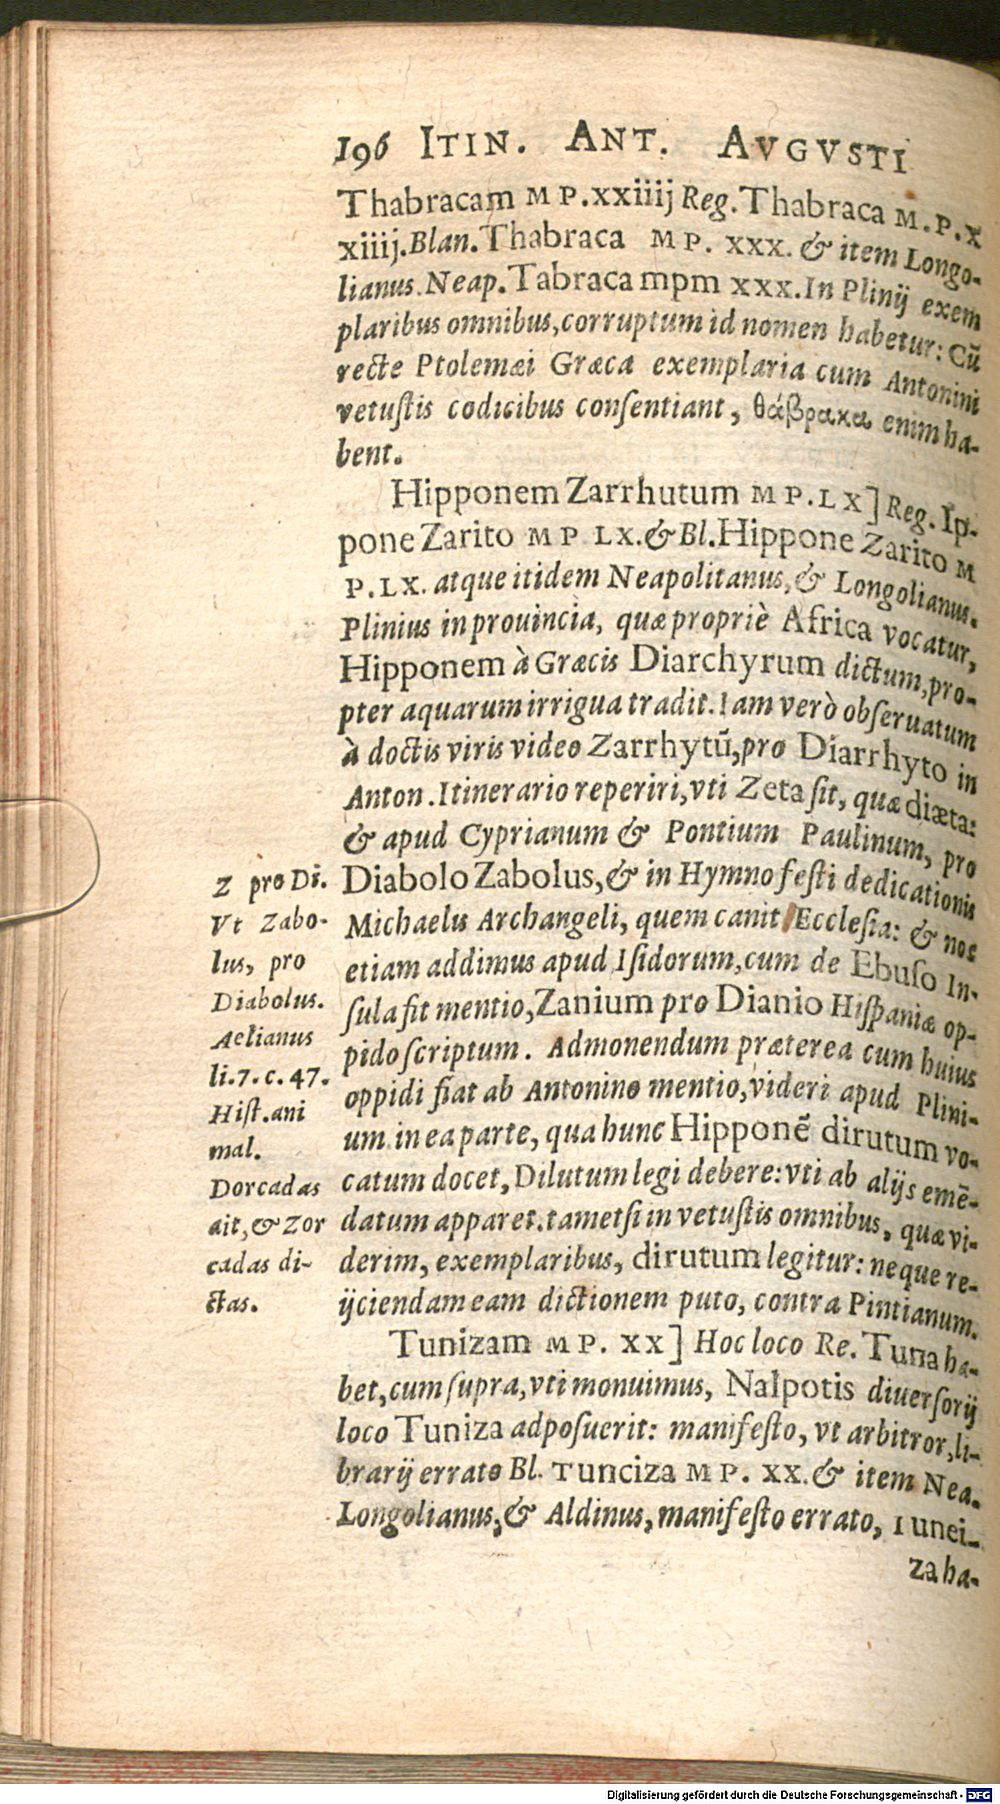 196 ITIN. ANT. AVGVSTI
Thabracam M P.xxiiij Reg. Thabraca M.P.X
xiiij. Blan. Thabraca M P. XXX. & item Longo-
lianus. Neap. Tabraca mpm XXX. In Plinij exem
plaribus omnibus, corruptum id nomen habetur: Cũ
recte Ptolemæi Græca exemplaria cum Antonini
vetustis codicibus consentiant, θάβρακα enim ha-
bent.
Hipponem Zarrhutum M P. L X] Reg. Ip-
pone Zarito M P LX. & Bl. Hippone Zarito M
P. LX. atque itidem Neapolitanus, & Longolianus.
Plinius in prouincia, quæ propriè Africa vocatur,
Hipponem à Græcis Diarchyrum dictum, pro-
pter aquarum irrigua tradit. Iam verò obseruatum
à doctis viris video Zarrhytũ, pro Diarrhyto in
Anton. Itinerario reperiri, vti Zeta sit, quæ diæta:
& apud Cyprianum & Pontium Paulinum, pro
Diabolo Zabolus, & in Hymno festi dedicationis
Michaelis Archangeli, quem canit Ecclesia: & nos
etiam addimus apud Isidorum, cum de Ebuso In-
sula fit mentio, Zanium pro Dianio Hispaniæ op-
pido scriptum. Admonendum præterea cum huius
oppidi fiat ab Antonino mentio, videri apud Plini-
um in ea parte, qua hunc Hipponẽ dirutum vo-
catum docet, Dilutum legi debere: vti ab alijs emẽ-
datum apparet. tametsi in vetustis omnibus, quæ vi-
derim, exemplaribus, dirutum legitur: neque re-
ijciendam eam dictionem puto, contra Pintianum.
Tunizam M P. XX] Hoc loco Re. Tuna ha-
bet, cum supra, vti monuimus, Nalpotis diuersorij
loco Tuniza adposuerit: manifesto, vt arbitror, li-
brarij errato Bl. Tunciza M P. XX. & item Nea.
Longolianus, & Aldinus, manifesto errato, Tunei-
za ha-
Z pro Di.
Vt Zabo-
lus, pro
Diabolus.
Aelianus
li.7.c.47.
Hist.ani
mal.
Dorcadas
ait, & Zor
cadas di-
ctas.
Digitalisierung gefördert durch die Deutsche Forschungsgemeinschaft - DFG